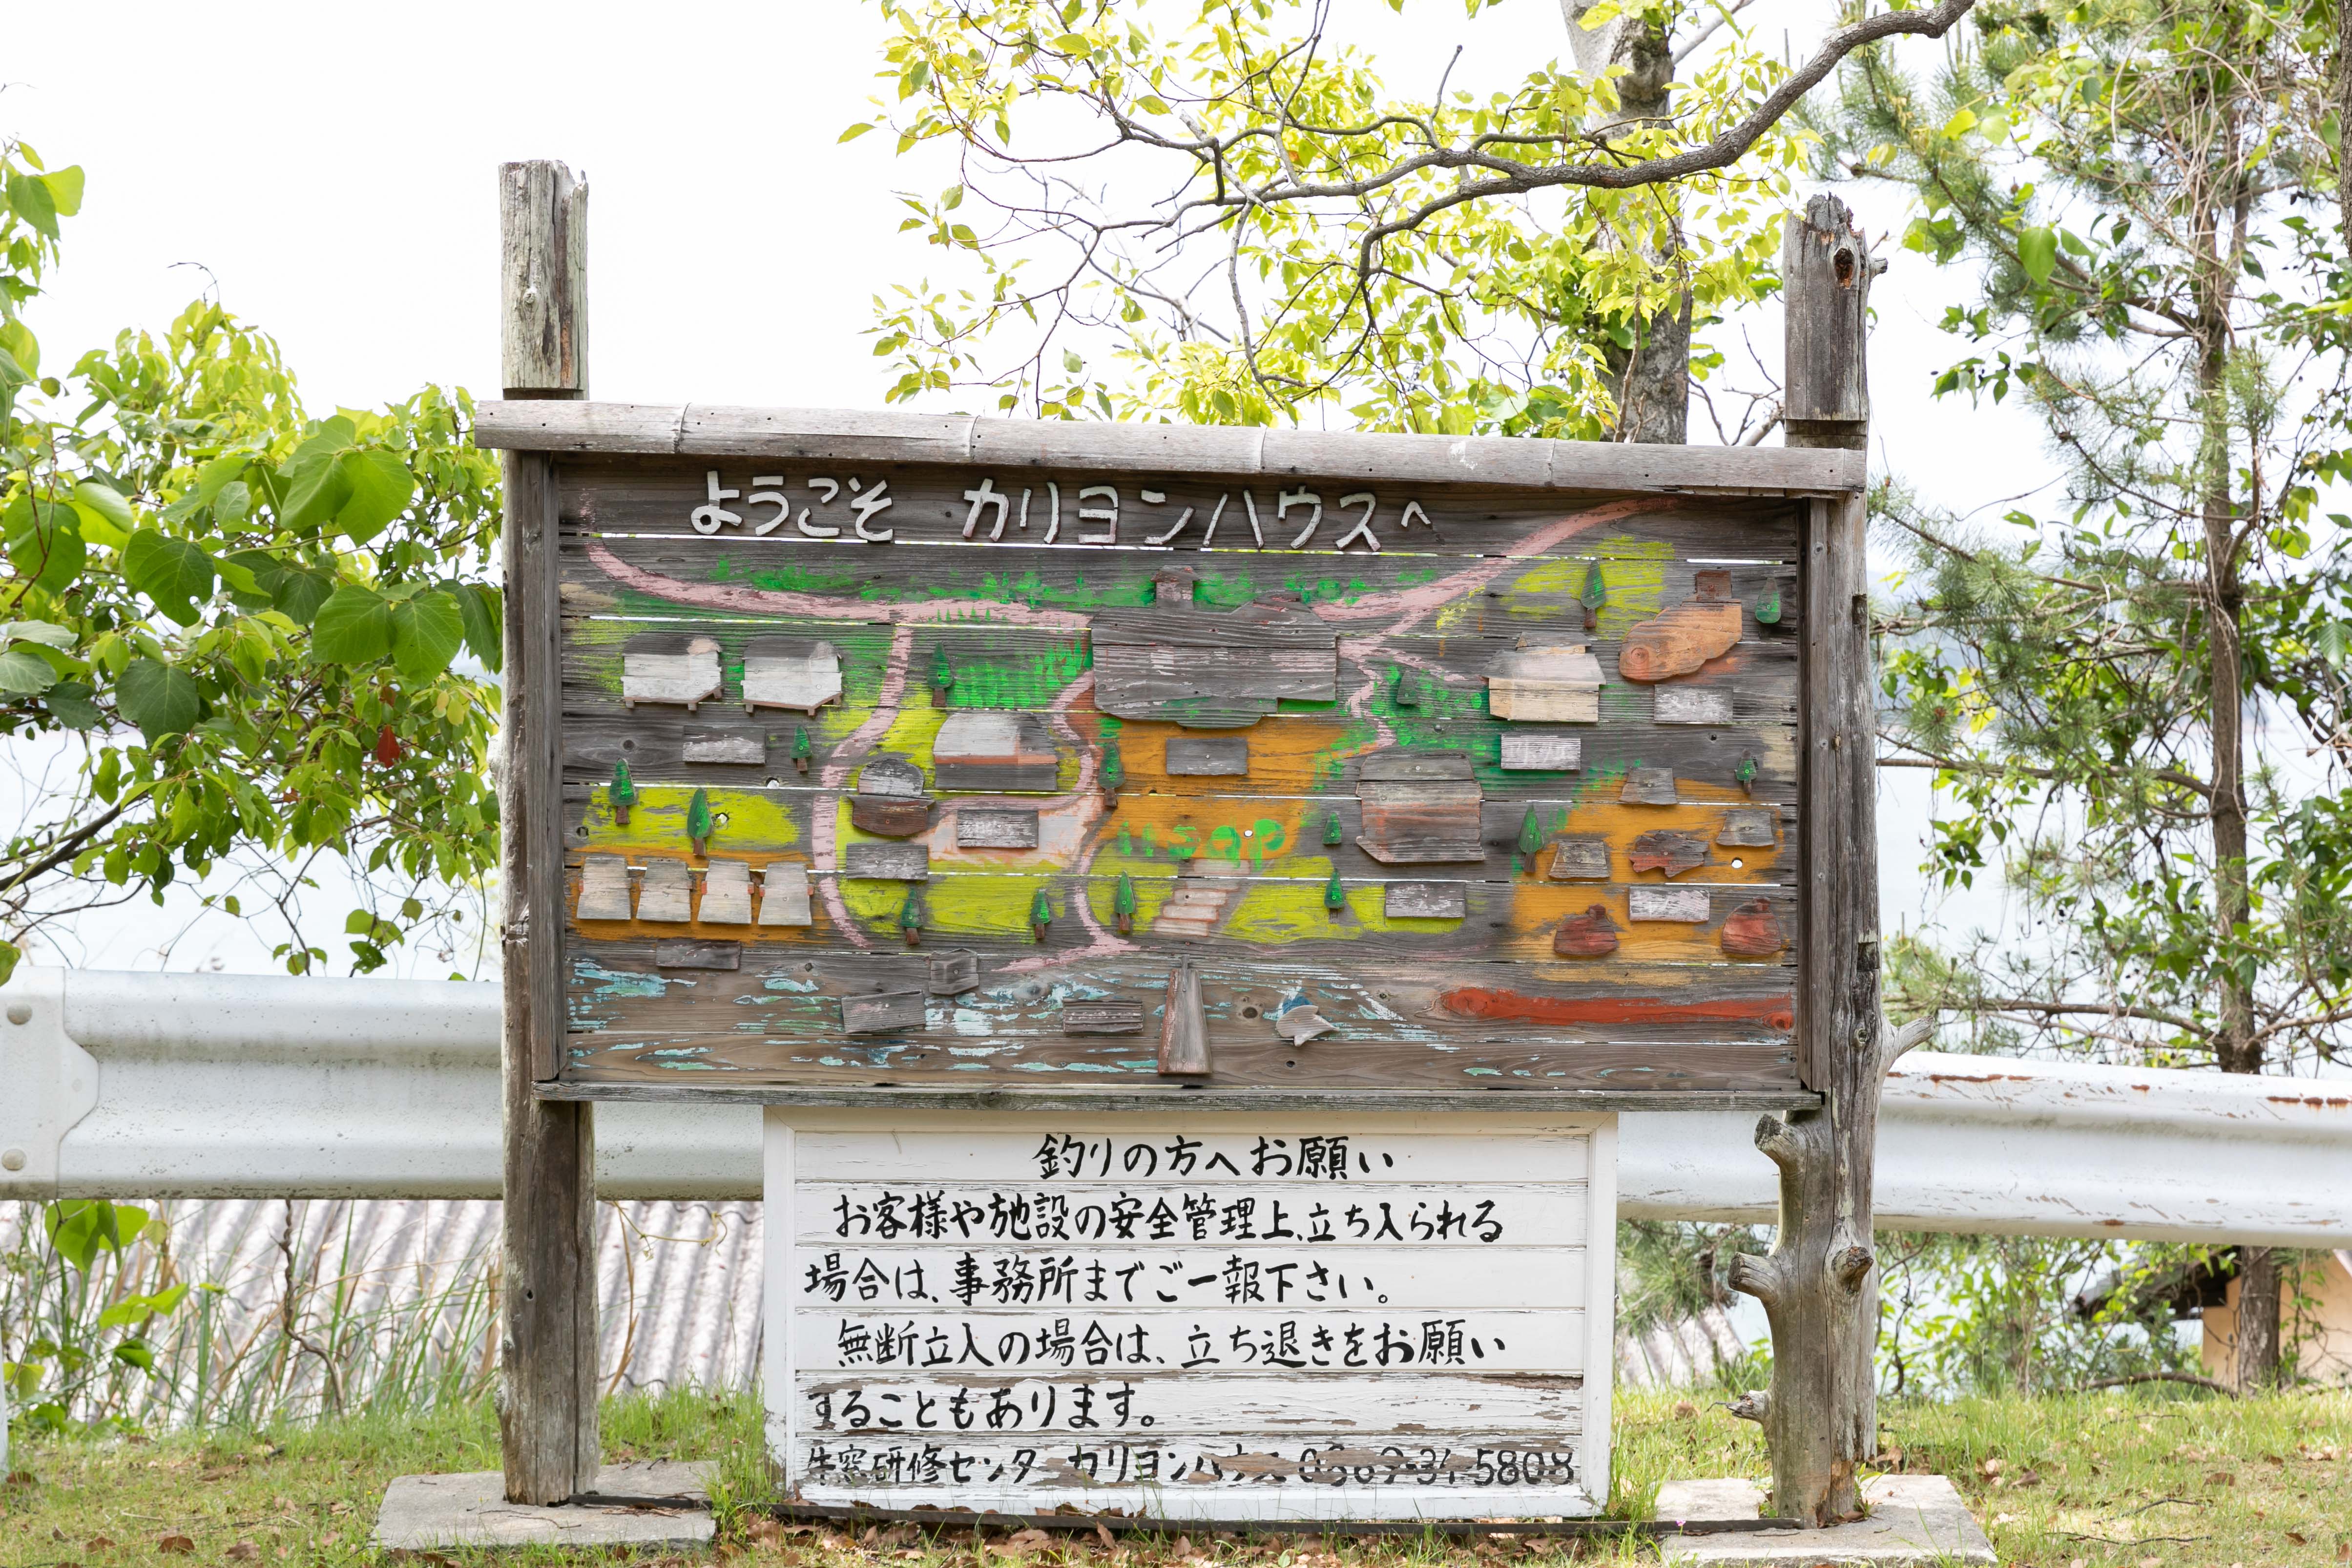 ようこそ カリヨンハウスへ
釣りの方へお願い
お客様や施設の安全管理上、立ち入られる
場合は、事務所までご一報下さい。
無断立入の場合は、立ち退きをお願い
することもあります。
牛窓研修センター カリヨンハウス 0869-34-5808